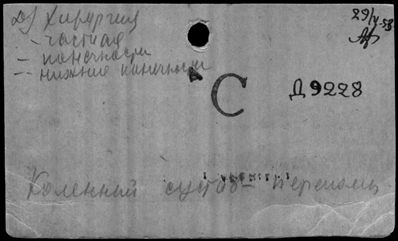 Д) Хирургия
29/V-53
- частная
- конечности
-- нижние конечности
С
Д9228
Коленный сустав - переломы